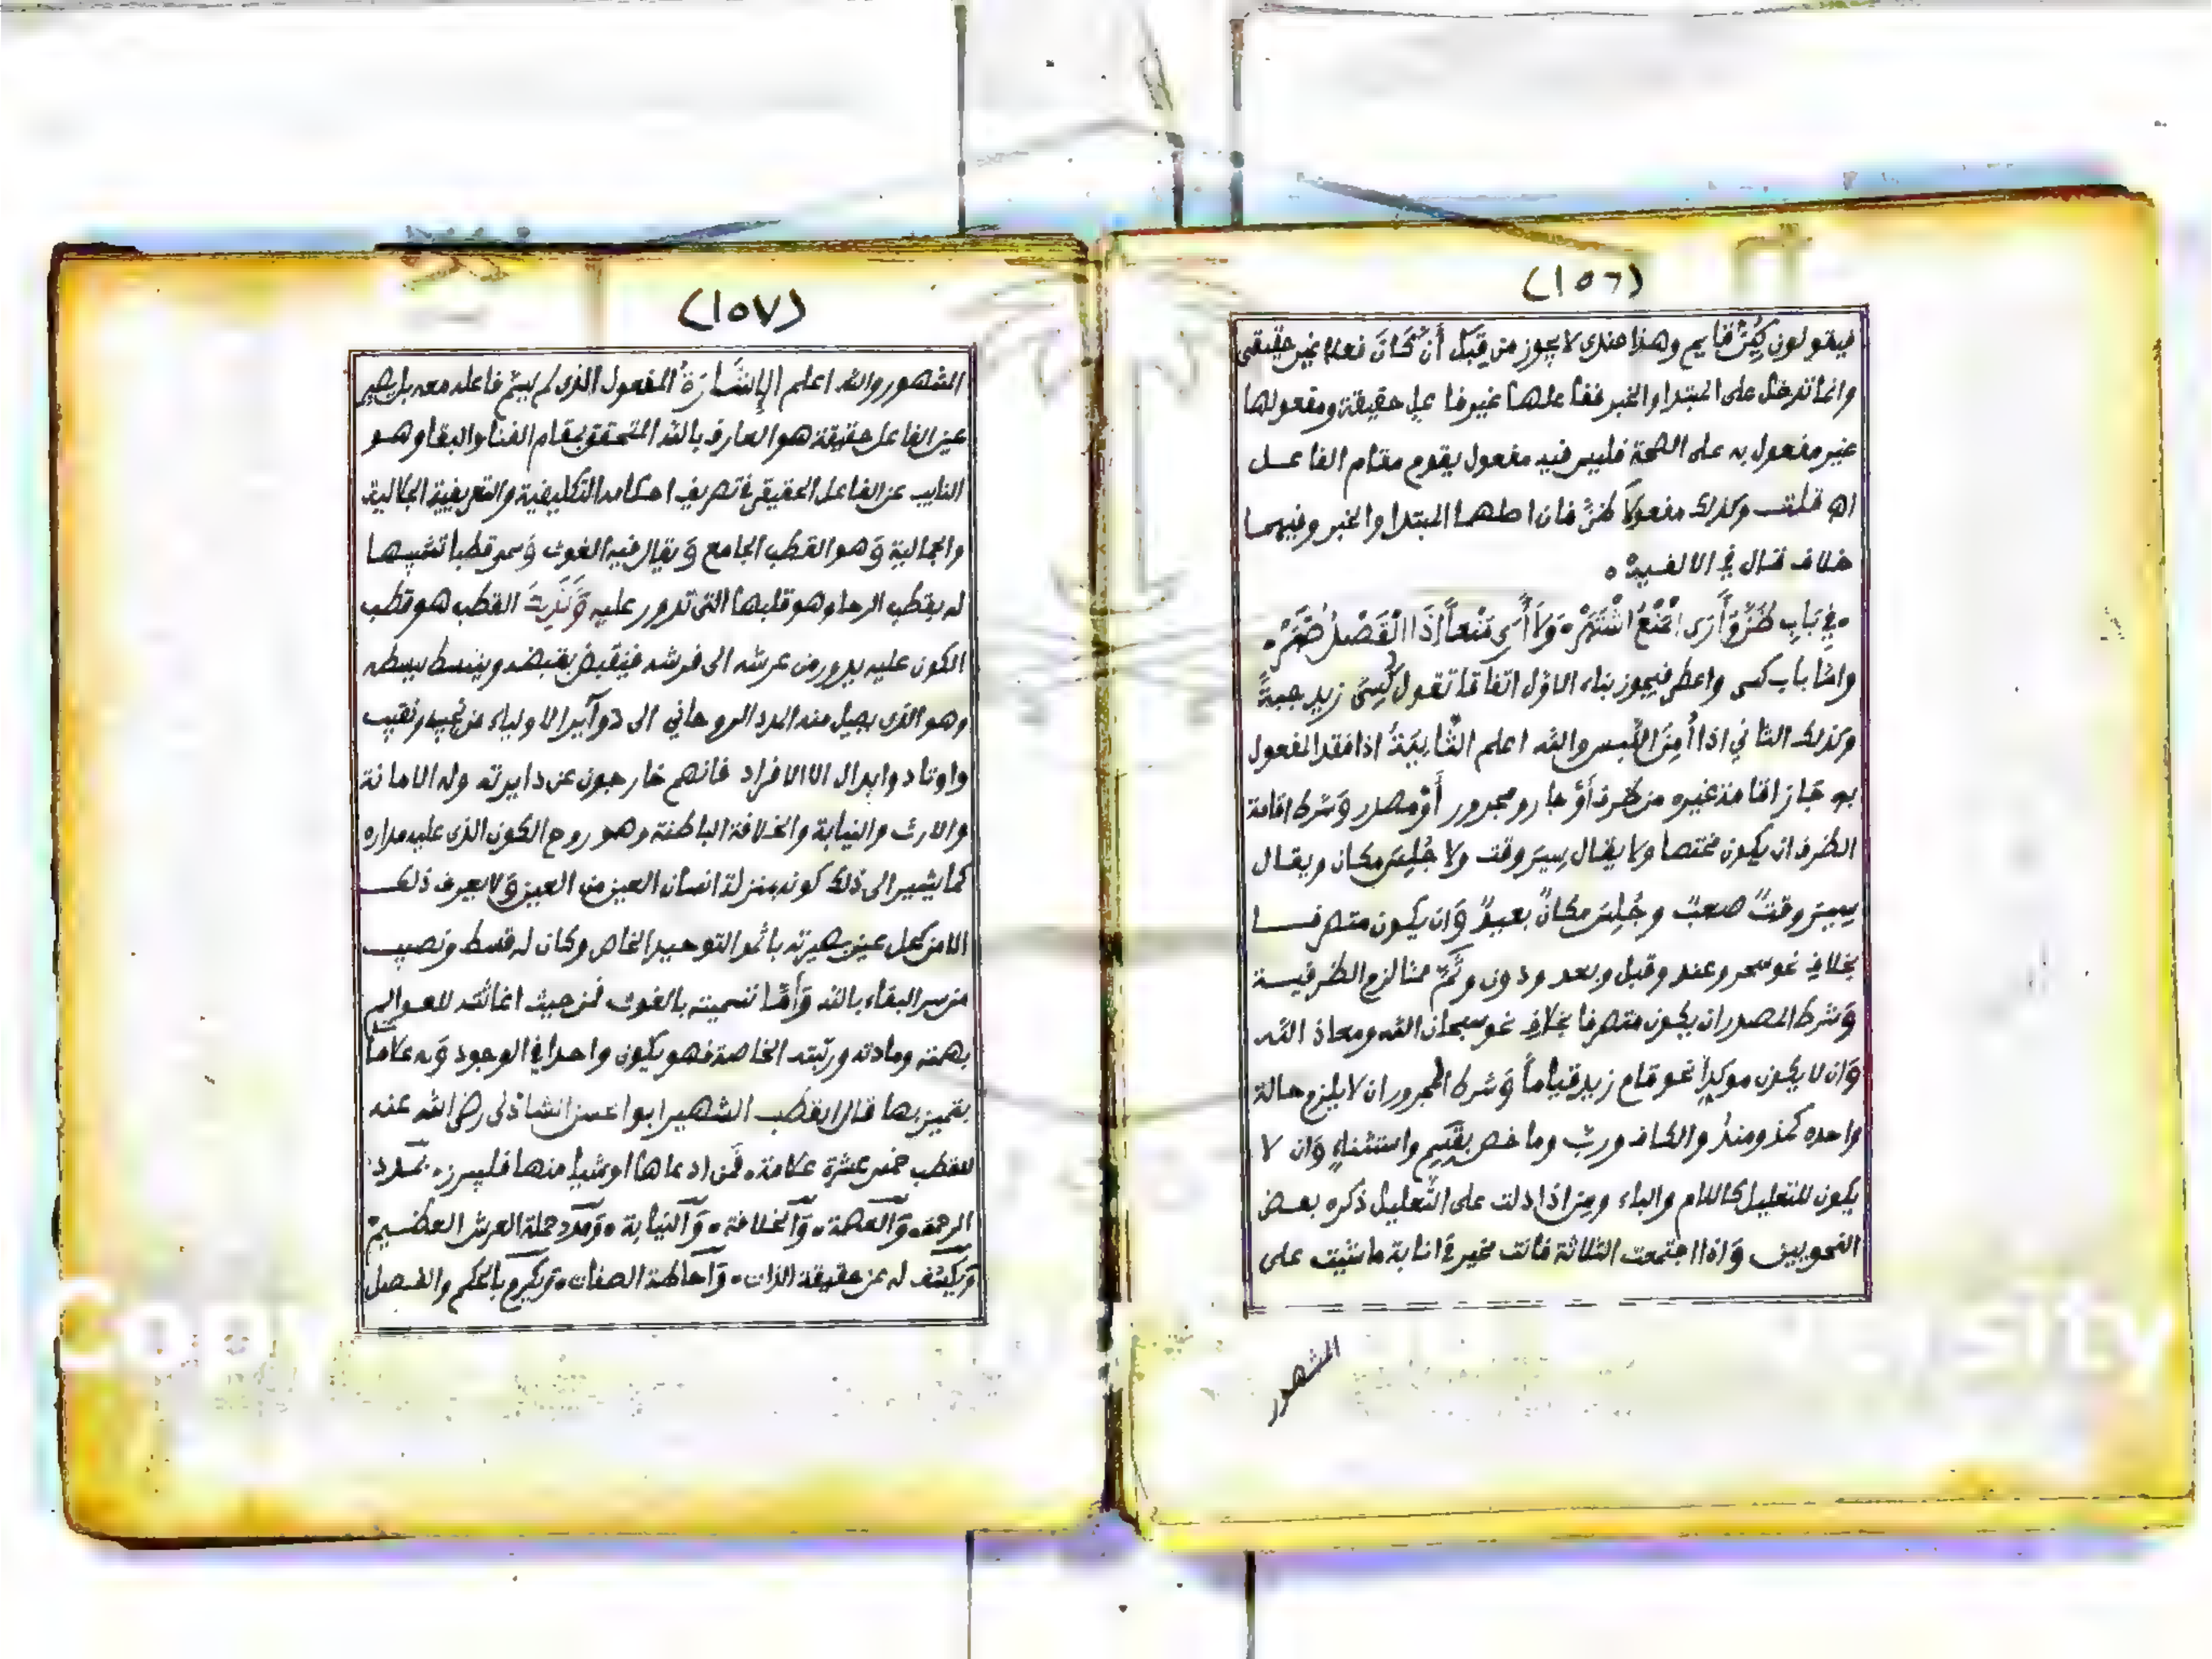 (١٥٦)
فيقولون كِينَ قايم وهذا عندى لا يجوز من قِبَل أَنَّ كَانَ فعلا غير حقيقى
وانما تدخل على المبتدا والخبر ففاعلها غير فاعل حقيقة ومفعولها
غير مفعول به على الصحة فليس فيه مفعول يقوم مقام الفاعل
اه قلت وكذلك مفعولا ظنّ فان اصلهما المبتدا والخبر وفيهما
خلاف قال في الالفية ه
في بَابِ ظَنَّ وَأَرَى المَنْعُ اشْتَهَرْ ه وَلاَ أَرَى مَنْعاً إِذَا القَصْدُ ظَهَرْ ه
واما باب كسى واعطى فيجوز بناء الاوّل اتفاقا تقول كُسِىَ زيد جبةً
وكذلك الثاني اذا أُمِنَ اللّبس والله اعلم الثَّانِيَةُ اذا فقد المفعول
به جَاز اقامة غيره من ظرف أَوْ جار ومجرور أَوْ مصدر وَشرط اقامة
الظرف ان يكون مختصا ولا يقال سِيرَ وقت ولا جُلِسَ مكان ويقال
سِيرَ وقتٌ صعبٌ وجُلِسَ مكانٌ بعيدٌ وَان يكون متصرفا
بخلاف نحو سحر وعند وقبل وبعد ودون وثَمَّ مما لزم الظرفية
وَشرط المصدر ان يكون متصرفا بخلاف نحو سبحان الله ومعاذ الله
وَان لا يكون موكدا نحو قام زيد قياماً وَشرط المجرور ان لا يلزم حالة
واحده كمذ ومنذُ والكاف وربّ وما خص بقَسَمٍ واستثناءٍ وَان لا
يكون للتعليل كاللام والباء ومِن اذا دلت على التّعليل ذكره بعض
النحويين وَاذا اجتمعت الثلاثة فانت مخير فى انابة ما شئت على
المشهور
(١٥٧)
المشهور والله اعلم الإِشَارَةُ المفعول الذى لم يسمّ فاعله معه بل يصير
عين الفاعل حقيقة هو العارف بالله المتحقق بمقام الفنا والبقا وهو
النايب عن الفاعل الحقيقى فى تصريف احكامه التكليفية والتعريفية الجلالية
والجمالية وَهو القطب الجامع وَيقال فيه الغوث وَسمى قطبا تشبيها
له بقطب الرحا وهو قلبها التى تدور عليه وَكَذَلِكَ القطب هو قطب
الكون عليه يدور من عرشه الى فرشه فينقبض بقبضه وينبسط ببسطه
وهو الذى يصل منه المدد الروحاني الى دوآيرالاولياء من نجيب ونقيب
واوتاد وابدال الا الافراد فانهم خارجون عن دايرته وله الامانة
والارث والنيابة والخلافة الباطنة وهو روح الكون الذى عليه مداره
كما يشير الى ذلك كونه بمنزلة انسان العين من العين وَلا يعرف ذلك
الا من كحل عين بصيرته باثمد التوحيد الخاص وكان له قسط ونصيب
من سر البقاء بالله وَأَمَّا تسميته بالغوث فمن حيث اغاثته للعوالم
بهمته ومادته ورتبته الخاصة فهو يكون واحدا في الوجود وَله علامات
يتميز بها قال القطب الشهير ابو الحسن الشاذلى رضى الله عنه
للقطب خمس عشرة علامة ه فَمن ادعاها او شيا منها فليبرز ه بمدد
الرحمة ه وَالعصمة ه وَالخلافة ه وَالنيابة ه وَمدد حملة العرش العظيم ه
وَيكشف له عن حقيقة الذات ه وَاحاطة الصفات ه وَيكرم بالحكم والفصل